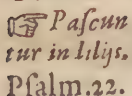 ☞ Paſcun
tur in lilijs.
Pſalm.22.